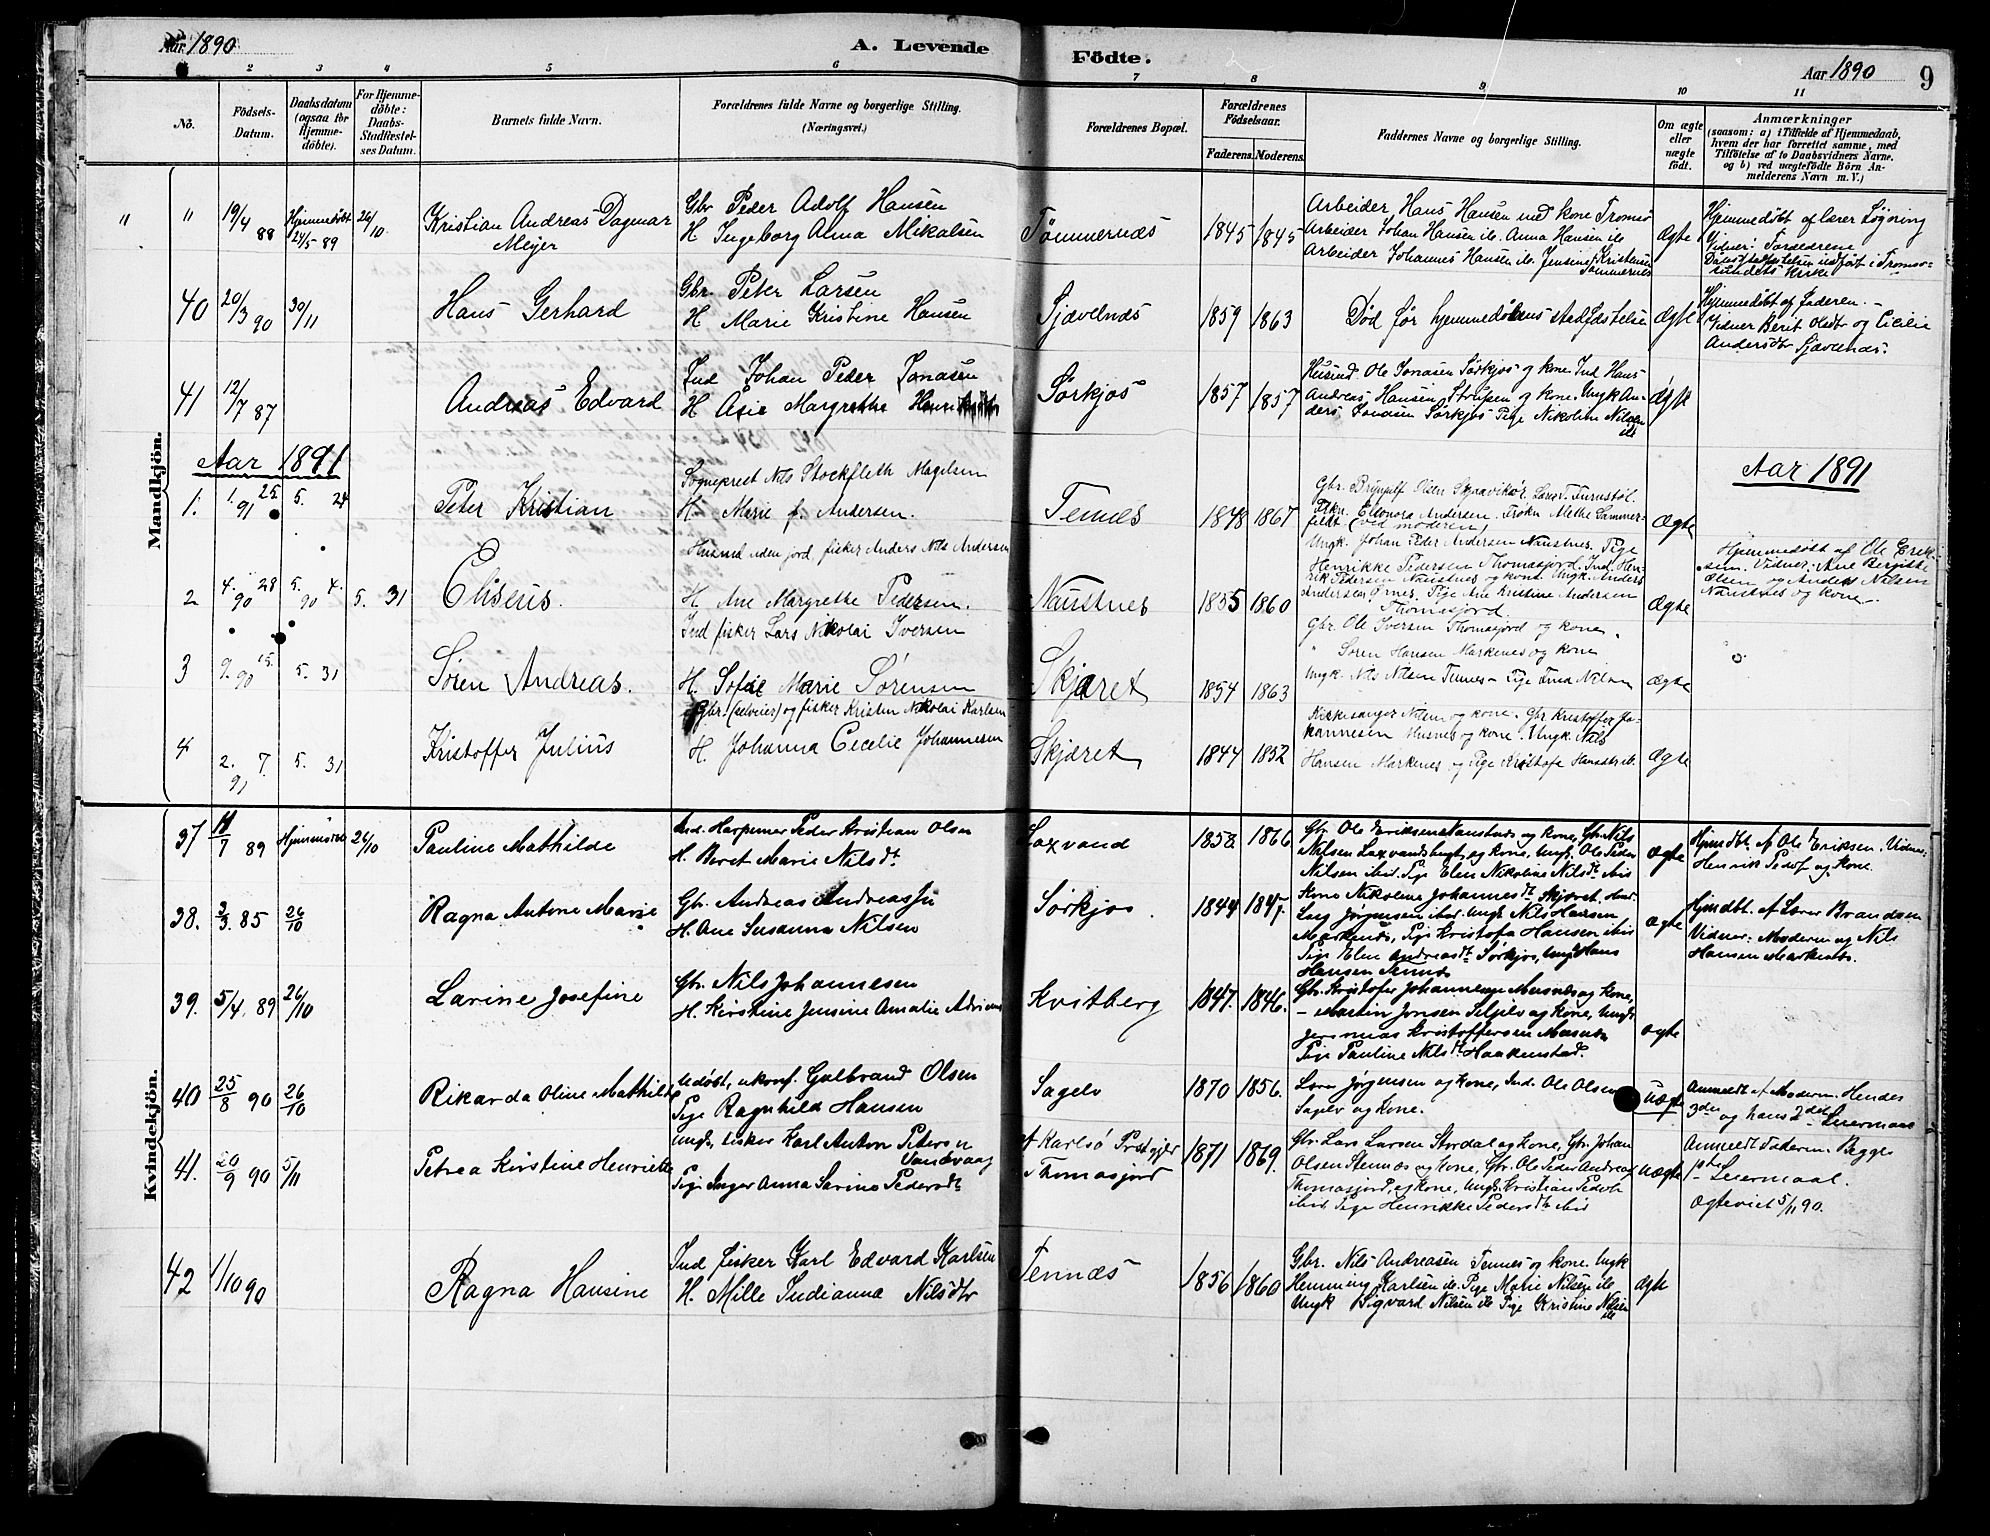 Aar 1890
A. Levende
Födte.
Aar 1890
9
2 3 4 5 6 7 8 9 10 11
No.
Födsels-
Datum.
Daabsdatum
(ogsaa for
Hjemme-
döbte).
For Hjemme-
döbte:
Daabs-
Stadfæstel-
ses Datum.
Barnets fulde Navn.
Forældrenes fulde Navne og borgerlige Stilling.
(Næringsvei.)
Forældrenes Bopæl.
Forældrenes
Födselsaar.
Faderens. Moderens.
Faddernes Navne og borgerlige Stilling.
Om ægte
eller
uægte
født.
Anmærkninger
(saasom: a) i Tilfælde af Hjemmedaab,
hvem der har forrettet samme, med
Tilföielse af to Daabsvidners Navne,
og b) ved uægtefödte Börn An-
melderens Navn m. V.)
Mandkjön.
" " 19/4 88 Hjemmedøbt 24/5 89 26/10
Kristian Andreas Dagmar
Mejer
Gbr Peder Adolf Hansen
H Ingeborg Anna Mikalsen
Tømmernæs
1845 1845
Arbeider Hans Hansen med kone Tromsø
Arbeider Johan Hansen ib. Anna Hansen ib
Arbeider Johannes Hansen ib. Jensine Kristensen
Tømmernes
Ægte
Hjemmedøbt af lærer Løgning
Vidner: Forældrene
40 20/3 90 30/11
Hans Gerhard
Gbr. Peter Larsen
H Marie Kristine Hansen
Sjævelnæs
1859 1863
Død før hjemmedøbens stadfæstelse
Ægte
Hjemmedøbt af faderen. -
Vidner Berit Olsdtr og Cicilie
Andersdtr Sjævelnæs.
41 12/7 87
Andreas Edvard
Ind Johan Peder Jonasen
H Asie Margrethe
Sørkjos
1857 1857
Husmd. Ole Jonasen Sørkjos og kone. Ind Hans
Andreas Hansen, Strupen og kone. Ungk An-
ders Jonasen Sørkjos Pige Nikoline Nilsen
ib
Ægte
Aar 1891
Aar 1891
1. 1. 25 91 5. 24
Peter Kristian
Sogneprest Nils Stockfleth Magelsen
H Marie f. Andersen.
Tennes
1848 1867
Gbr. Brynjulf Olsen
Frkn. Eleonora Andersen. Frøkn Methe Sammer-
feldt (ved moderen)
Ægte
2 4. 28 90 5. 4. 90 5. 31
Eliseus.
Husmd uden jord fisker Anders Nils Andersen
H. Ane Margrethe Pedersen.
Naustnes
1855 1860
Ungk. Johan Peder Andersen Naustnes. Pige
Henrikke Pedersen Thomasjord. Ind. Hen-
rik Pedersen Naustnes og kone. Ungk. Anders
Andersen Ørnes. Pige Ane Kristine Andersen
Thomasjord.
Ægte
Hjemmedøbt af Ole Erik-
sen. Vidner: Ane Bergitte
Olsen og Anders Nilsen
Naustnes og kone.
3 9. 15. 90 5. 31
Søren Andreas.
Ind fisker Lars Nikolai Iversen
H. Sofie Marie Sørensen
Skjæret
1854 1863
Gbr. Ole Iversen Thomasjord og kone.
" Søren Hansen Markenes og kone
Ungk. Nils Nilsen Tennes - Pige Nilsen
Ægte
4 2. 7. 91 5. 31
Kristoffer Julius
Gbr. (selveier) og fisker Kristen Nikolai Karlsen
H. Johanna Cecelie Johannesen
Skjæret
1844 1852
Kirkesanger Nilsen og kone. Gbr Kristoffer Jo-
hannesen Musnes og kone. Ungk. Nils
Hansen Markenes og Pige Kristofa Hansdtr ib.
Ægte
Kvindekjön.
37 11/7 89 Hjemmedøbt 26/10
Pauline Mathilde
Ind. Harpuner Peder Kristian Olsen
H. Beret Marie Nilsdt
Laxvand
1858 1866
Gbr. Ole Eriksen Naustnes og kone, Gbr. Nils
Nilsen Laxvandbugt og kone, Ungk. Ole Peder
Nilsen ibid. Pige Elen Nikoline Nilsdt ibid
ægte
Hjemdbt. af Ole Eriksen. Vidner:
Henrik Peders og kone.
38. 3/3. 85 26/10
Ragna Antone Marie
Gbr. Andreas Andreassen
H. Ane Susanna Nilsen
Sørkjos.
1844 1847.
Kone Nikoline Johannesdt Skjæret,
Lars Jørgensen ibid. Ungk Nils Hansen
Markenes, Pige Kristofa Hansen ibid
Pige Elen Andreasdt Sørkjos, Ungk Hans
Hansen Tennes
ægte
Hjemdbt. af Lærer Brandsen
Vidner: Moderen og Nils
Hansen Markenes.
39. 5/4. 89 26/10
Larine Josefine
Gbr. Nils Johannesen
H. Kirstine Jensine Amalie
Kvitberg
1847. 1846.
Gbr. Kristofer Johannesen Musnes og kone,
- Martin Jonsen Seljelv og kone, Ungk.
Jeremias Kristoffersen Musnes
Pige Pauline Nilsdt Haakenstad.
ægte
40 25/8 90 26/10
Rikarda Oline Mathilde
Udøbt, ukonf. Gulbrand Olsen
Pige Ragnhild Hansen
Sagelv
1870 1856.
Lars Jørgensen og kone, Ind. Ole Olsen
Sagelv og kone.
uægte
Anmeldt af Moderen. Hendes
3die og hans 2det Leiermaal
41. 20/9 90 5/11
Petrea Kirstine Henriette
Ungk. fisker Karl Anton Petersen
Sandvaag
Pige Inger Anna Sarine Pedersdt
af Karlsö Prstgjld
Thomasjord
1871 1869.
Gbr. Lars Larsen Stordal og kone, Gbr. Johan
Olsen Stennæs og kone, Gbr. Ole Peder Andreas
Thomasjord, og kone, Ungk. Kristian Peders
ibid. Pige Henrikke Pedersdt ibid
uægte
Anmeldt Faderen. Begges
1ste Leiermaal.
Ægteviet 5/11 90.
42 1/10 90
Ragna Hansine
Ind fisker Karl Edvard Karlsen
H. Mille Indianna Nilsdtr
Tennæs
1856 1860
Gbr. Nils Andreasen Tennes og kone. Ungk
Hemming Karlsen ib. Pige Marie Nilsen ib.
Ungk Sigvard Nilsen ib Pige Kristine Nilsen
ib
ægte